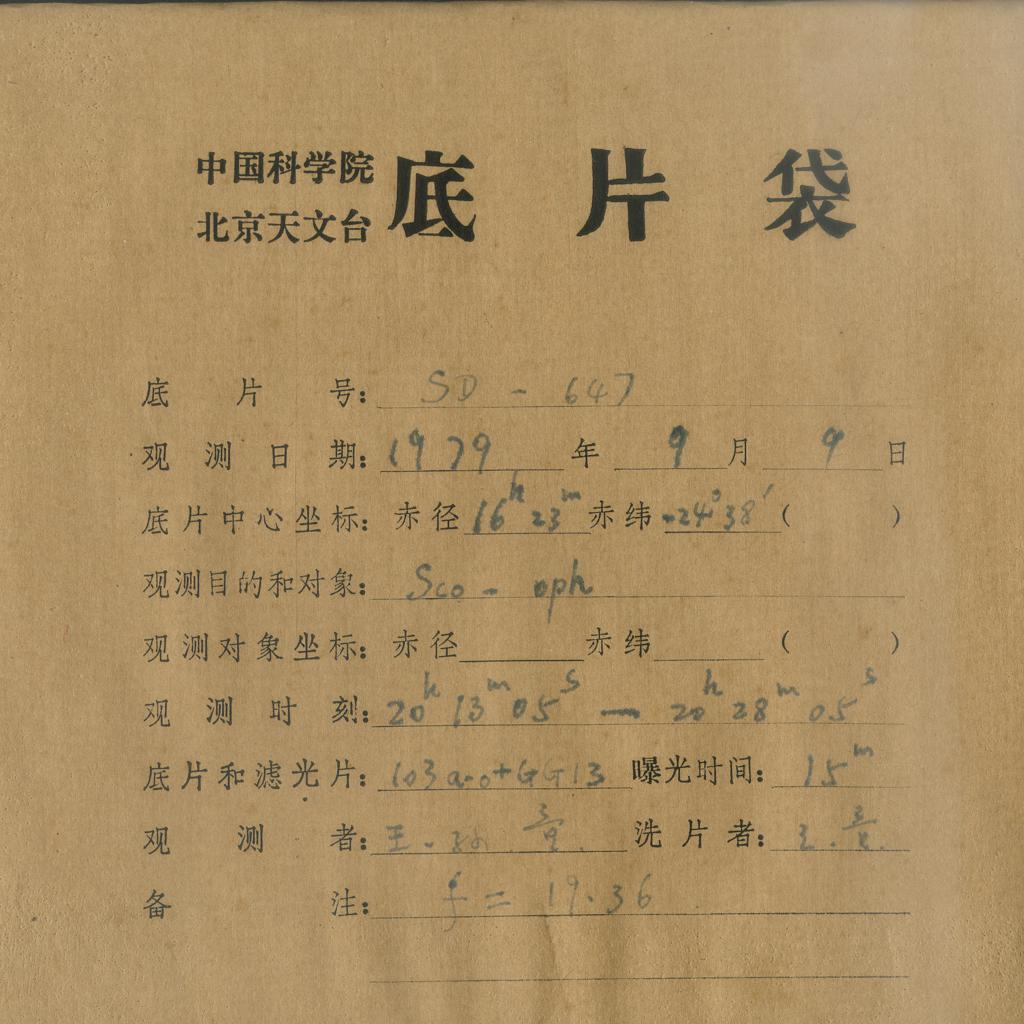 中国科学院
北京天文台 底片袋
底片号: SD - 647
观测日期: 1979 年 9 月 9 日
底片中心坐标: 赤径 16h 23m 赤纬 -24°38′ ( )
观测目的和对象: Sco - oph
观测对象坐标: 赤径 赤纬 ( )
观测时刻: 20h 13m 05s — 20h 28m 05s
底片和滤光片: 103a-o+GG13 曝光时间: 15m
观测者: 王. 孙. 洗片者: 王.
备注: f = 19.36